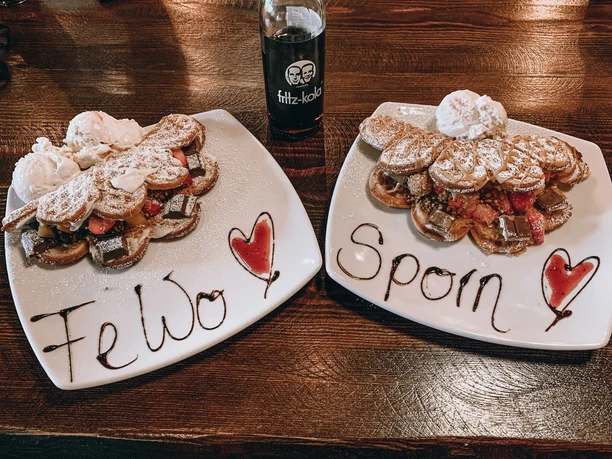 fritz-kola
FeWo
Spom